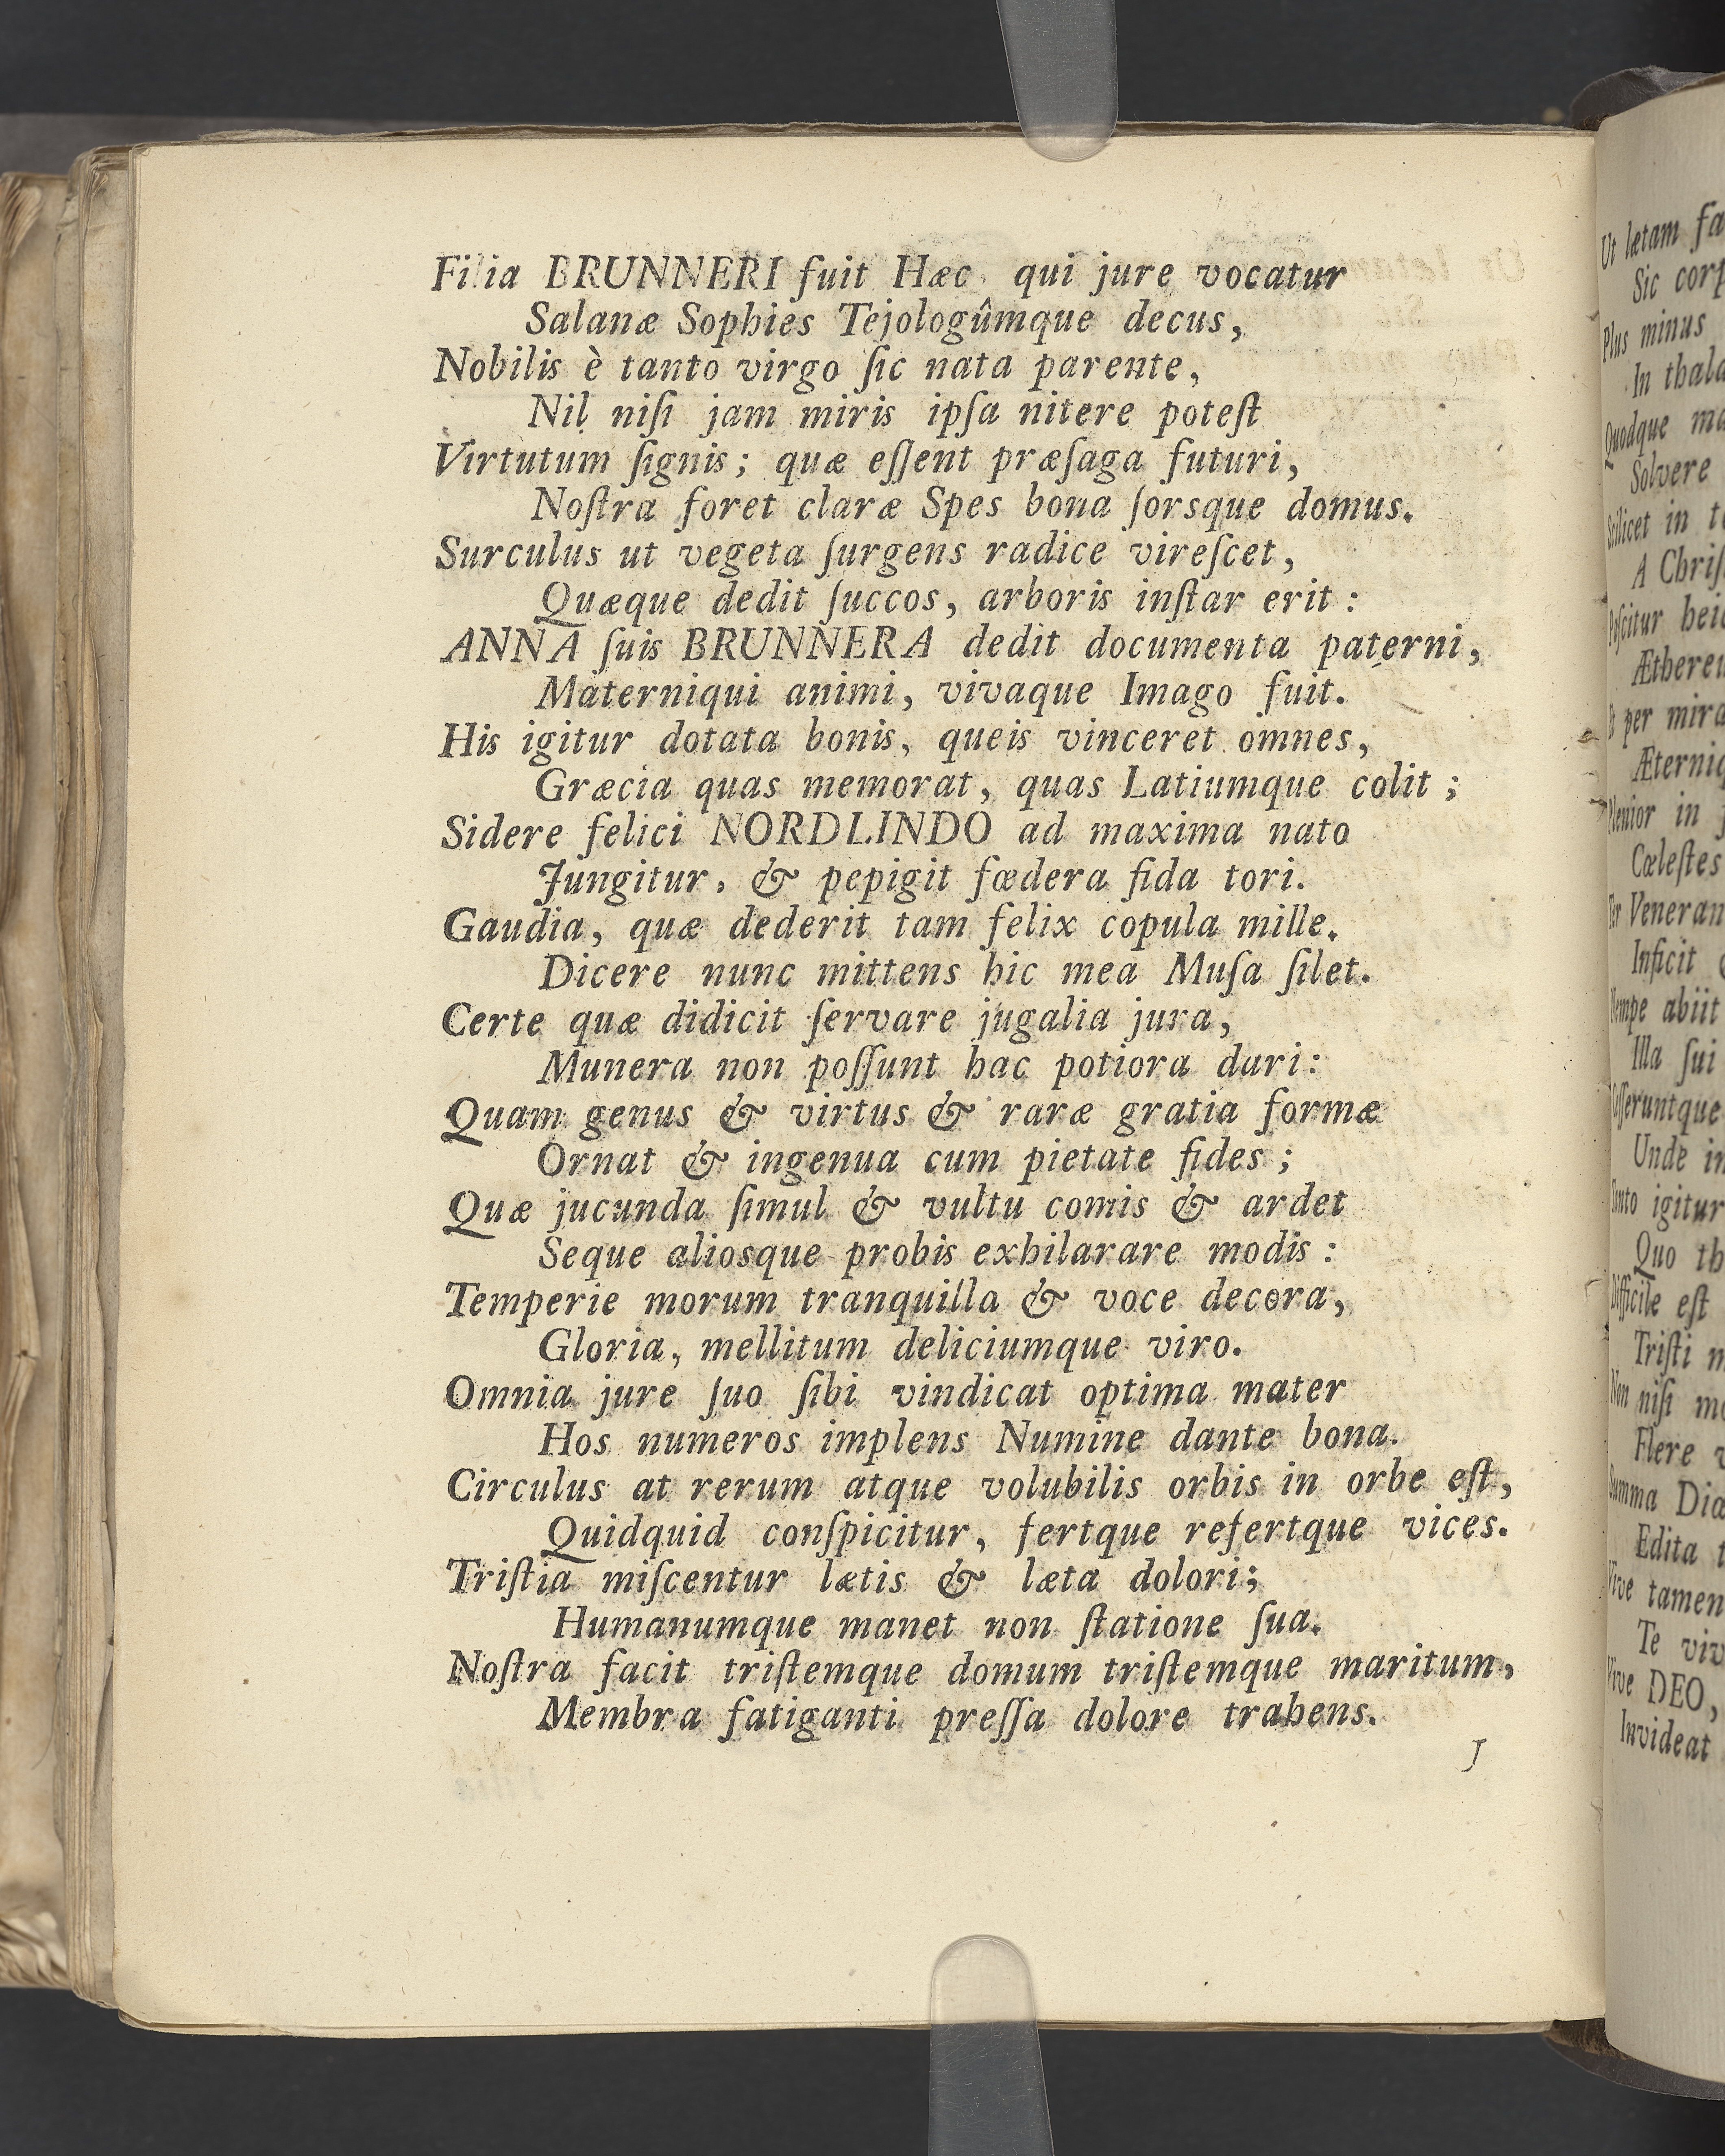 Filia BRUNNERI fuit Hæc qui jure vocatur
Salanæ Sophies Tejologûmque decus,
Nobilis è tanto virgo ſic nata parente,
Nil niſi jam miris ipſa nitere poteſt
Virtutum ſignis; quæ eſſent præſaga futuri,
Noſtra foret claræ Spes bona ſorsque domus.
Surculus ut vegeta ſurgens radice vireſcet,
Quæque dedit ſuccos, arboris inſtar erit:
ANNA ſuis BRUNNERA dedit documenta paterni,
Materniqui animi, vivaque Imago fuit.
His igitur dotata bonis, queis vinceret omnes,
Græcia quas memorat, quas Latiumque colit;
Sidere felici NORDLINDO ad maxima nato
Jungitur, & pepigit fœdera fida tori.
Gaudia, quæ dederit tam felix copula mille,
Dicere nunc mittens hic mea Muſa ſilet.
Certe quæ didicit ſervare jugalia jura,
Munera non poſſunt hac potiora dari:
Quam genus & virtus & raræ gratia formæ
Ornat & ingenua cum pietate fides;
Quæ jucunda ſimul & vultu comis & ardet
Seque aliosque probis exhilarare modis:
Temperie morum tranquilla & voce decora,
Gloria, mellitum deliciumque viro.
Omnia jure ſuo ſibi vindicat optima mater
Hos numeros implens Numine dante bona.
Circulus at rerum atque volubilis orbis in orbe eſt,
Quidquid conſpicitur, fertque refertque vices.
Triſtia miſcentur lætis & læta dolori;
Humanumque manet non ſtatione ſua.
Noſtra facit triſtemque domum triſtemque maritum,
Membra fatiganti preſſa dolore trahens.
J
Ut lætam
Sic
Plus minus
In
Quodque
Solvere
Scilicet in
A
Poſcitur
per
in
Cœleſtes
Inficit
abiit
Illa ſui
Unde
igitur
Quo
Difficile eſt
Triſti
Non niſi
Flere
Summa
Edita
Vive tamen
Te
Vive DEO,
Invideat